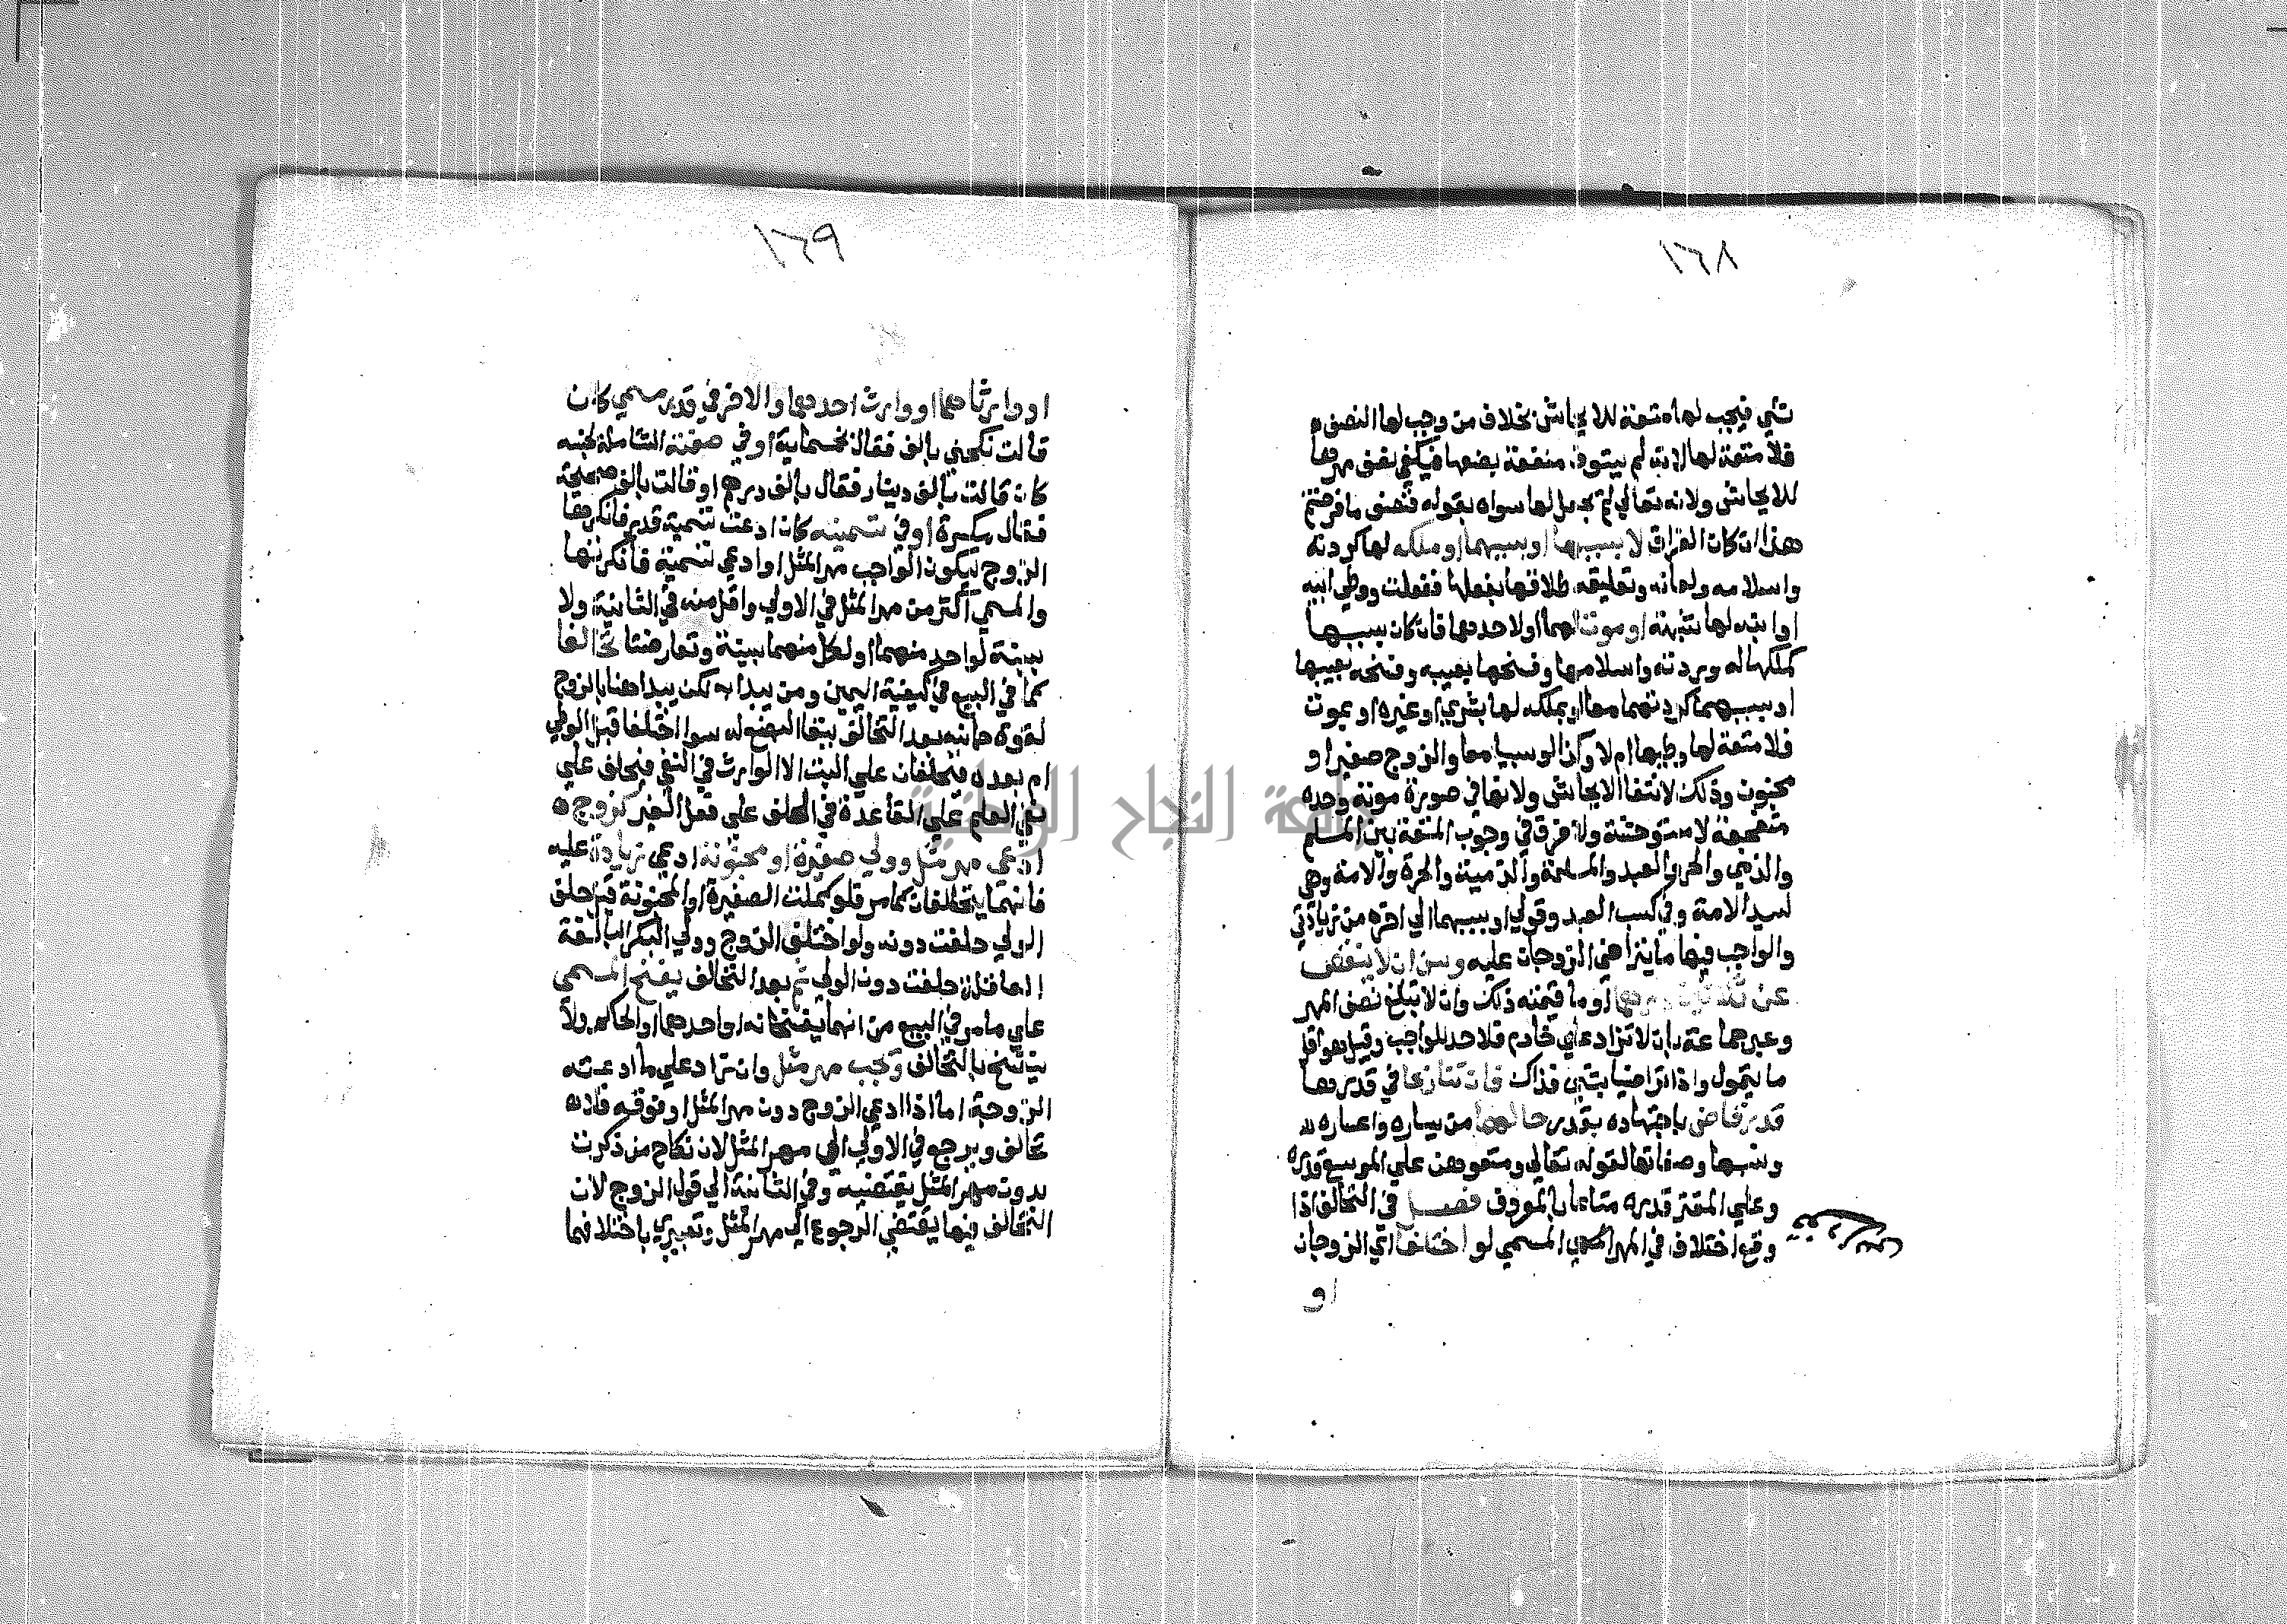 ١٦٨
شي فيجب لها متعة للايحاش بخلاف من وجب لها النصف
فلا متعة لها لانه لم يستوف منفعة بضعها فيكفي نصف مهرها
للايحاش ولانه تعالى لم يجعل لها سواه بقوله فنصف ما فرضتم
هذا ان كان الفراق لا بسببها او بسببهما او ملكه لها كردته
واسلامه ولعانه وتعليقه طلاقها بفعلها ففعلت ووطي ابيه
او ابنه لها بشبهة او موت لهما او لاحدهما فان كان بسببها
كملكها له وردته واسلامها وفسخها بعيبه وفسخه بعيبها
او بسببهما كردتهما معا او بملكه لها بشري او غيره او بموت
فلا متعة لها وطيها ام لا وكذا لو سبيا معا والزوج صغير او
مجنون وذلك لانتفا الايحاش ولانها في صورة موته وحده
متفجعة لا مستوحشة ولا فرق في وجوب المتعة بين المسلم
والذمي والحر والعبد والمسلمة والذمية والحرة والامة وهي
لسيد الامة وفي كسب العبد وقولي او بسببهما الي اخره من زيادتي
والواجب فيها ما يتراضي الزوجان عليه وسن ان لا ينقص
عن ثلاثين درهما او ما قيمته ذلك وان لا تبلغ نصف المهر
وعبر جماعة بان لا تزاد علي خادم فلا حد للواجب وقيل هو اقل
ما يتمول واذا تراضيا بشي فذاك فان تنازعا في قدرها
قدر قاض باجتهاده بقدر حالهما من يساره واعساره
ونسبها وصفاتها لقوله تعالى ومتعوهن علي الموسع قدره
وعلي المقتر قدره متاعا بالمعروف فصل في التحالف اذا
وقع اختلاف في المهر المسمي لو اختلفا اي الزوجان
او
١٦٩
او وارثاهما او وارث احدهما والاخر في قدر مسمي كان
قالت نكحتني بالف فقال بخمسماية او في صفته الشاملة لجنسه
كان قالت بالف دينار فقال بالف درهم او قالت بالف صحيحة
فقال مكسرة او في تسميته كان ادعت تسمية قدر فانكرها
الزوج ليكون الواجب مهر المثل او ادعي تسمية فانكرتها
والمسمي اكثر من مهر المثل في الاولي واقل منه في الثانية ولا
بينة لواحد منهما او لكل منهما بينة وتعارضتا تحالفا
كما في البيع في كيفية اليمين ومن يبدا به لكن يبدا هنا بالزوج
لقوة جانبه بعد التحالف ببقا البضع له سوا اختلفا قبل الوطي
ام بعده فيحلفان علي البت الا الوارث في النفي فيحلف علي
نفي العلم علي القاعدة في الحلف علي فعل الغير كزوج
ادعي مهر مثل وولي صغيرة او مجنونة ادعي زيادة عليه
فانهما يتحالفان كما مر فلو كملت الصغيرة او المجنونة قبل حلف
الولي حلفت دونه ولو اختلف الزوج وولي البكر البالغة
العاقلة حلفت دون الولي ثم بعد التحالف يفسخ المسمي
علي ما مر في البيع من انهما يفسخانه او احدهما او الحاكم ولا
ينفسخ بالتحالف وتجب مهر مثل وان زاد علي ما ادعته
الزوجة اما اذا ادعي الزوج دون مهر المثل او فوقه فلا
تحالف ويرجع في الاولي الي مهر المثل لان نكاح من ذكرت
بدون مهر المثل يقتضيه وفي الثانية الي قول الزوج لان
التحالف فيها يقتضي الرجوع الي مهر المثل وتعبيري باختلافهما